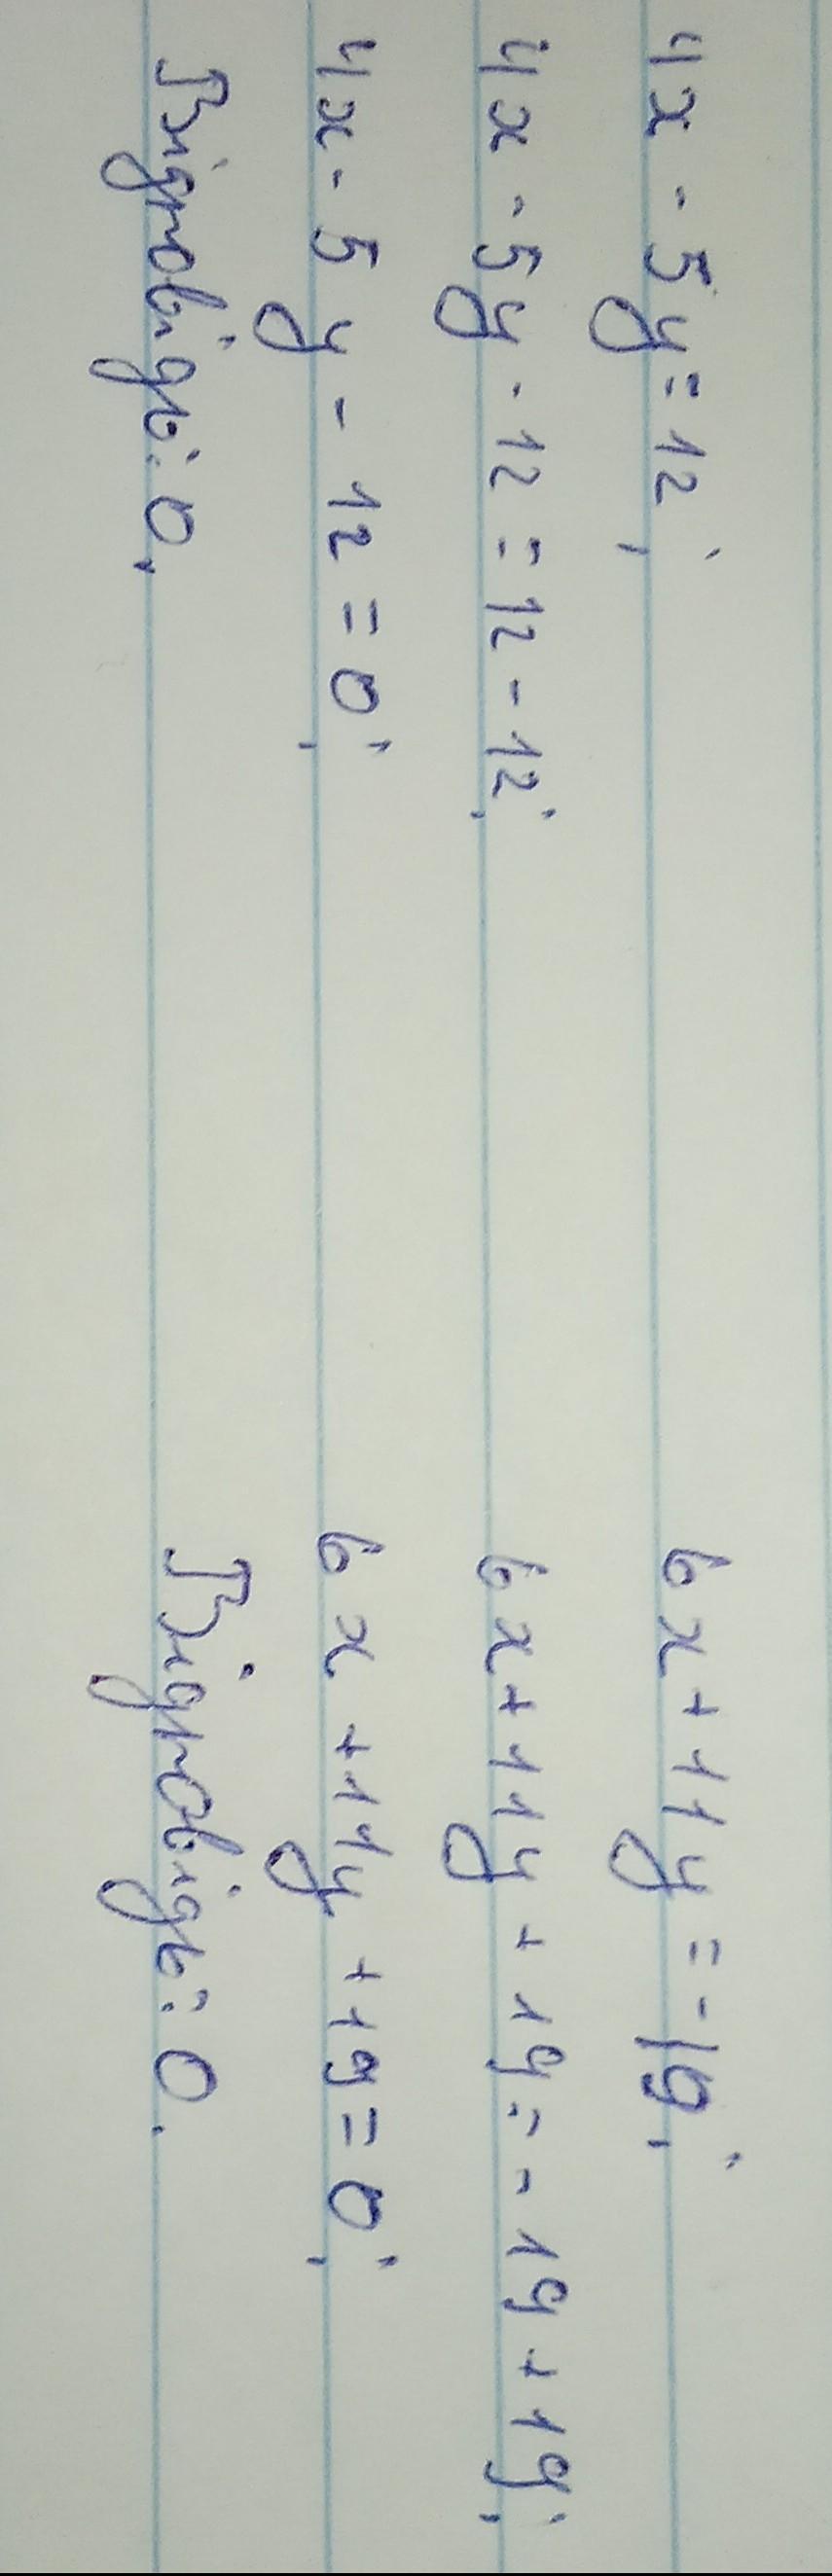 4x - 5y = 12;
4x - 5y - 12 = 12 - 12;
4x - 5y - 12 = 0;
Відповідь: 0.
6x + 11y = -19;
6x + 11y + 19 = - 19 + 19;
6x + 11y + 19 = 0;
Відповідь: 0.